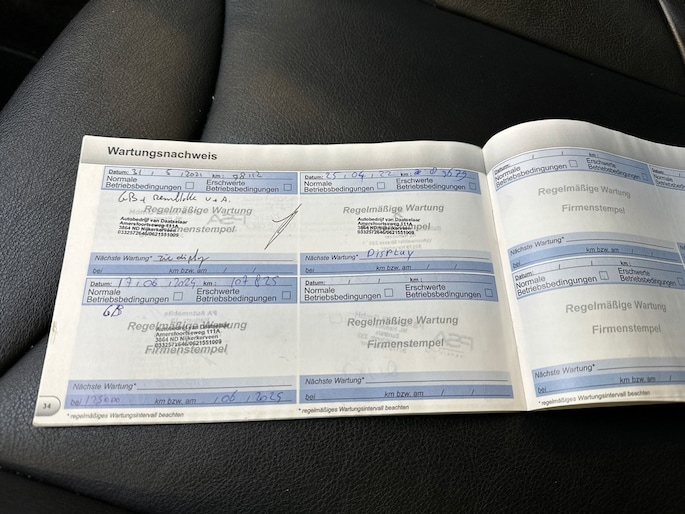 Wartungsnachweis
Datum: 31 / 5 / 2021 km :
Normale Betriebsbedingungen
Erschwerte Betriebsbedingungen
Regelmäßige Wartung
Autobedrijf van Dasselaar
Amersfoortseweg 111A
3864 ND Nijkerkerveen
0332572646/0621551009
Nächste Wartung* Zie display
bei km bzw. am / /
Datum: 25 / 04 / 22 km :
Normale Betriebsbedingungen
Erschwerte Betriebsbedingungen
Regelmäßige Wartung
Autobedrijf van Dasselaar
Amersfoortseweg 111A
3864 ND Nijkerkerveen
0332572646/0621551009
Firmenstempel
Nächste Wartung* DISPLAY
bei km bzw. am / /
Datum: 17 / 06 / 2024 km : 107825
Normale Betriebsbedingungen
Erschwerte Betriebsbedingungen
GB
Regelmäßige Wartung
Autobedrijf van Dasselaar
Amersfoortseweg 111A
3864 ND Nijkerkerveen
0332572646/0621551009
Firmenstempel
Nächste Wartung*
bei km bzw. am / 06 / 2025
* regelmäßiges Wartungsintervall beachten
Datum: / / km :
Normale Betriebsbedingungen
Erschwerte Betriebsbedingungen
Regelmäßige Wartung
Firmenstempel
Nächste Wartung*
bei km bzw. am / /
* regelmäßiges Wartungsintervall beachten
34
Datum: / / km :
Normale Betriebsbedingungen
Erschwerte Betriebsbedingungen
Regelmäßige Wartung
Firmenstempel
Nächste Wartung*
bei km bzw. am / /
Datum: / / km :
Normale Betriebsbedingungen
Erschwerte Betriebsbedingungen
Regelmäßige Wartung
Firmenstempel
Nächste Wartung*
bei km bzw. am
* regelmäßiges Wartungsintervall beachten